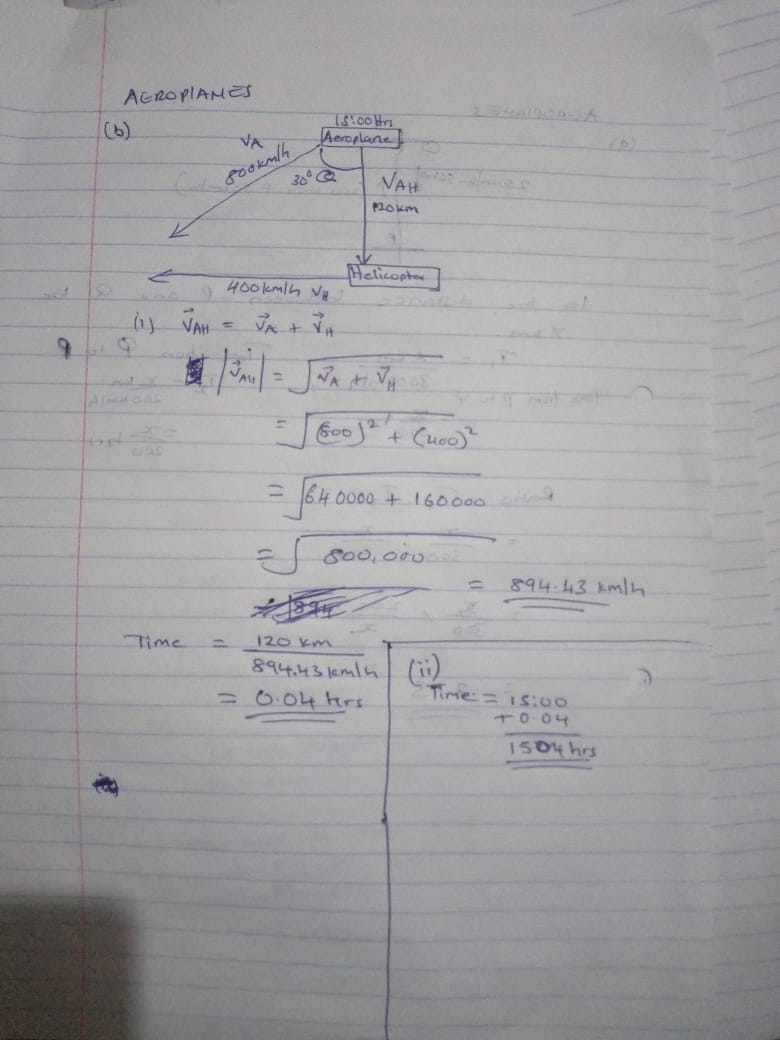 AEROPLANES
(b)
15:00 Hrs
Aeroplane
VA
800km/h
30° Q
VAH
120km
Helicopter
400km/h VH
(i) VAH = VA + VH
|VAH| = √VA + VH
= √(800)² + (400)²
= √640000 + 160000
= √800,000
= 894.43 km/h
Time = 120 km
894.43 km/h
= 0.04 hrs
(ii)
Time = 15:00
+ 0.04
1504 hrs